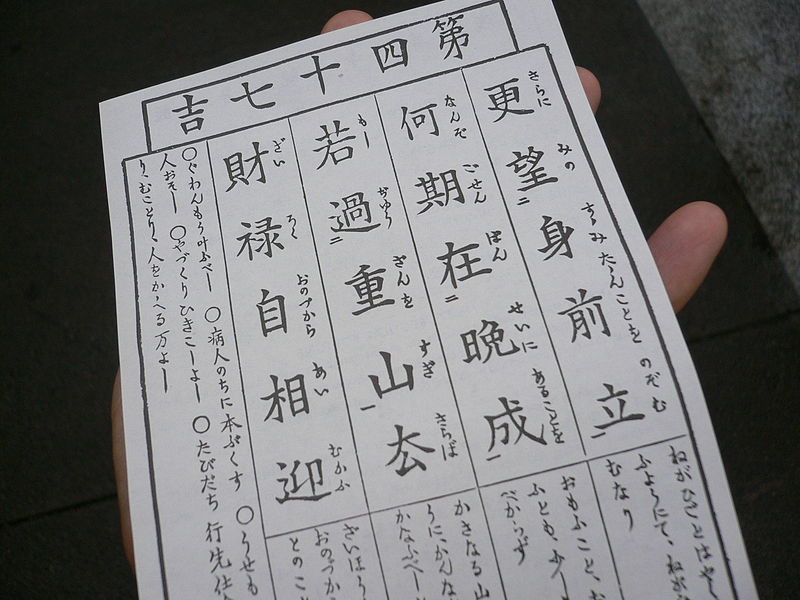 第四十七吉
更望身前立
さらに みの たゝんことを のぞむ
何期在晩成
なんぞ ごせん ばん せいに あることを
若過重山厺
もし ぢゆう ざんを すぎ さらば
財禄自相迎
ざい ろく おのづから あい むかふ
ねがひごとはや
ふようにて、ねが
むなり
おもふこと、お
ふとも、少し
べからず
かさなる山
うにかんな
かなふべし
ざいほう
おのづか
とのこ
○ぐわんもう叶ふべし ○病人のちに本ぷくす ○うせも
人おそし ○やづくりひきこしよし ○たびだち 行先仕
り、むことり、人をかゝへる万よし